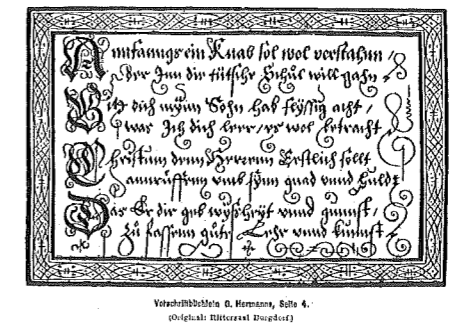 Anfangs ein Knab sol wol verstahn /
der Inn die tütsche Schůl will gahn
Sitz dich mynn Sohn hab flyssig acht /
was Ich dich leer / es wol betracht
Christum denn Herrenn Erstlich sollt
annrüffenn umb synn gnad vnnd huld
Das Er dir geb wyssheyt vnnd gunnst /
zů fassenn gůte Lehr vnd kunnst
Vorschriftbüchlein G. Hermanns, Seite 4.
(Original: Rittersaal Burgdorf)